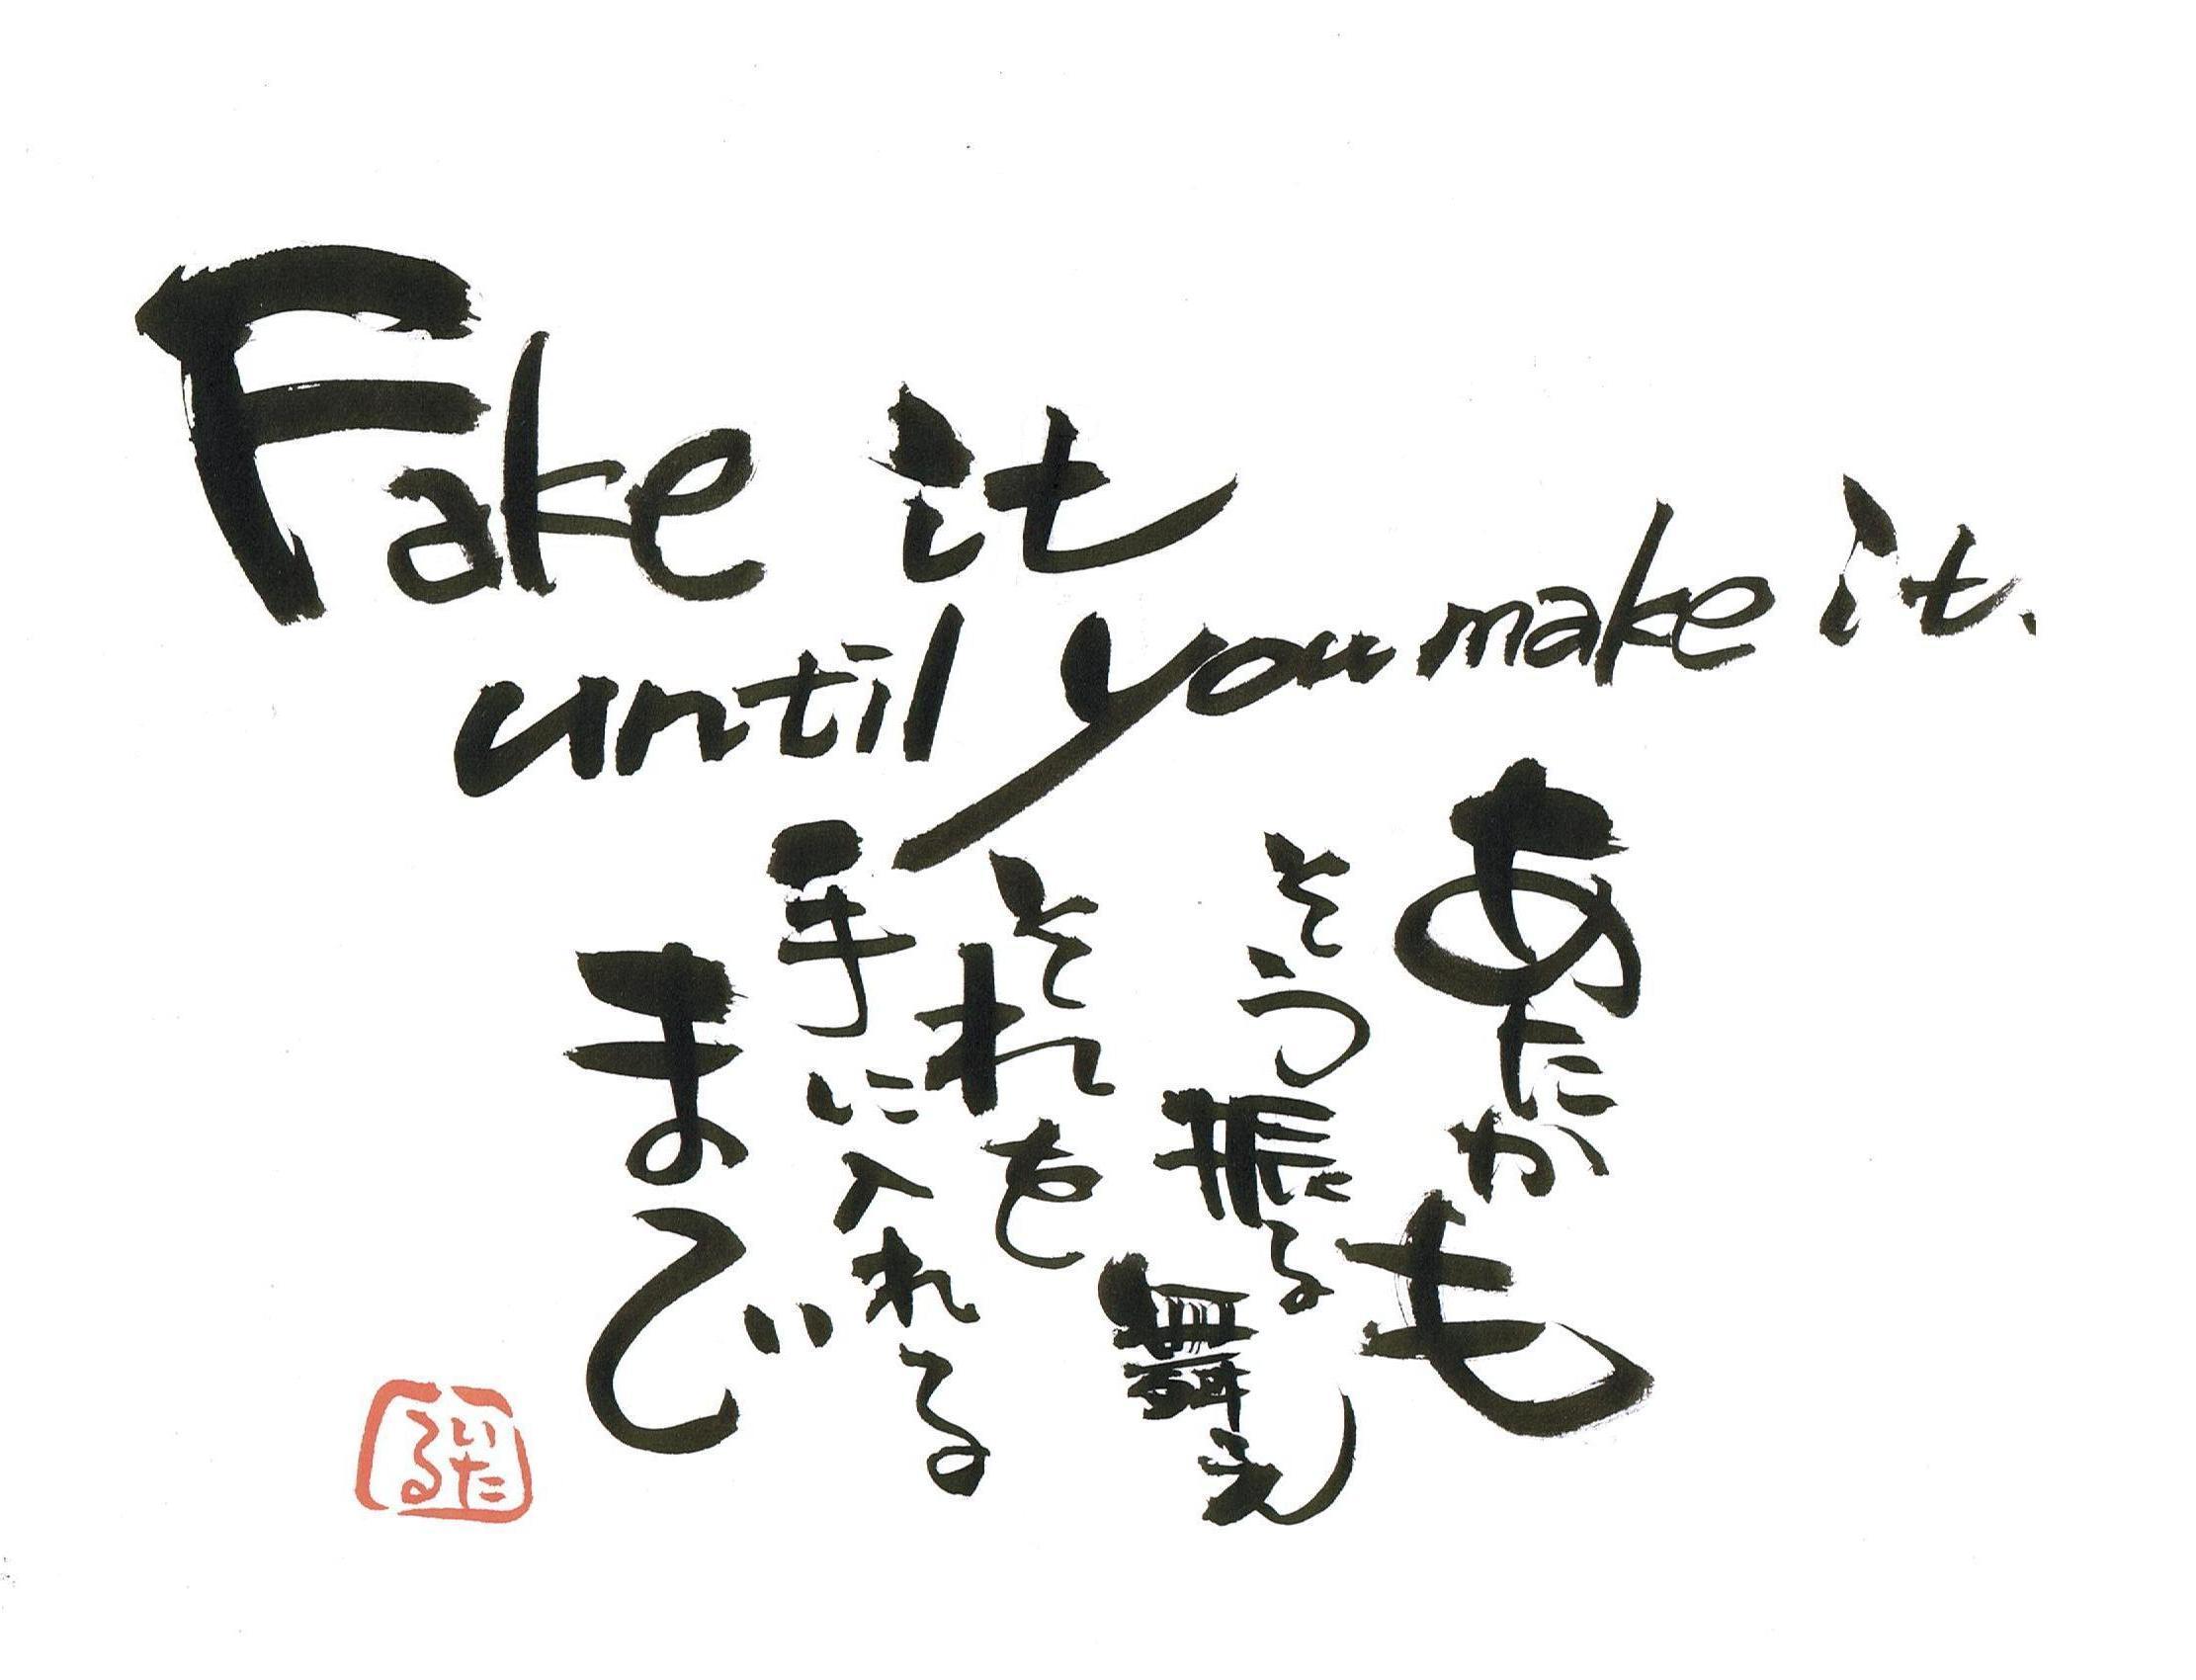 Fake it
until you make it.
あたかも
そう振る
舞え
それを
手に入れる
まで
いた
る